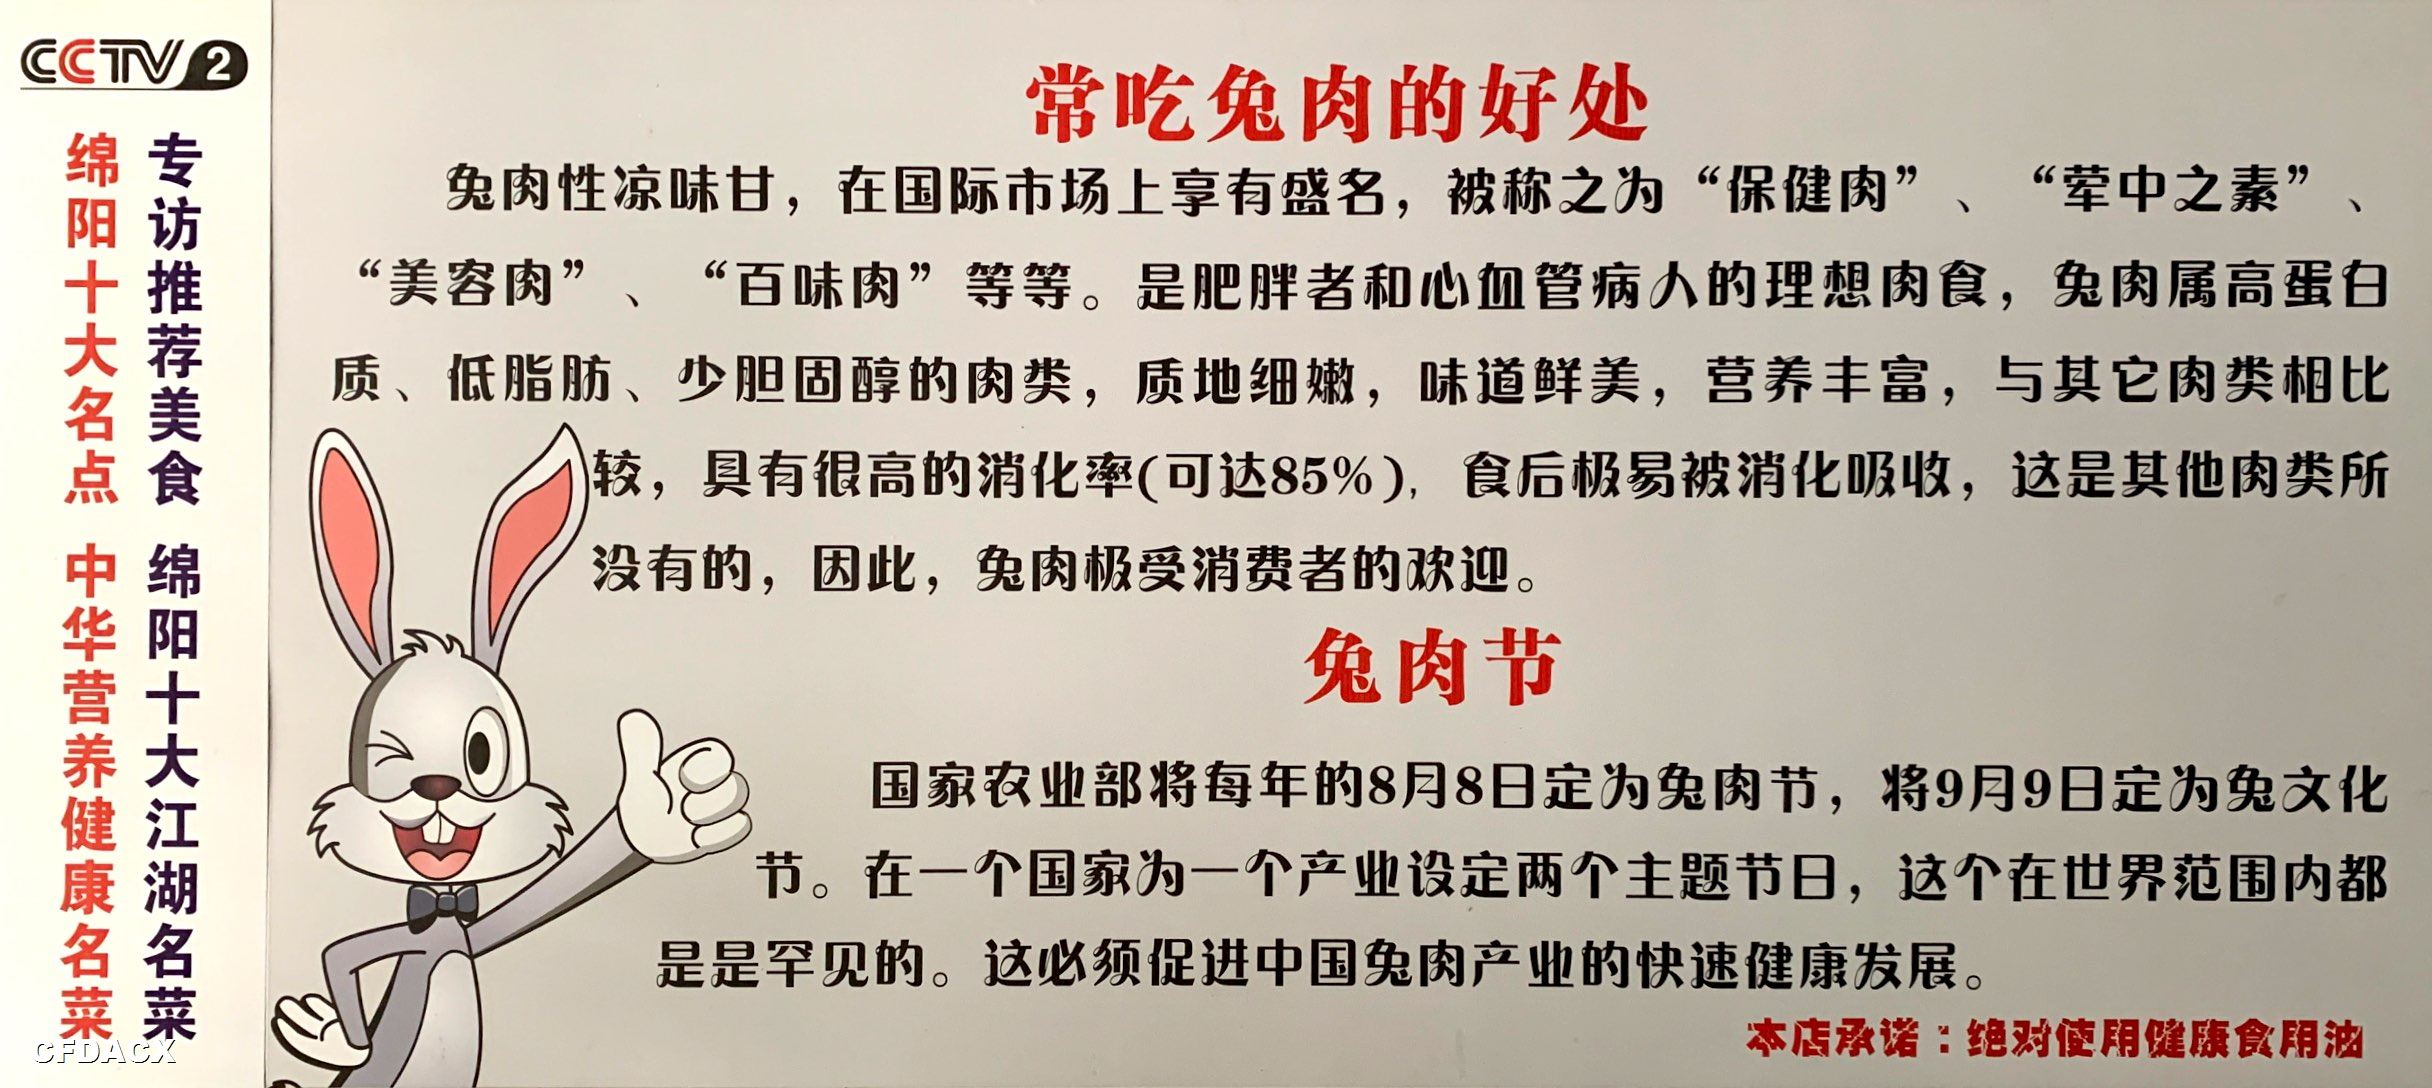 CCTV 2
专访推荐美食 绵阳十大江湖名菜
绵阳十大名点 中华营养健康名菜
常吃兔肉的好处
兔肉性凉味甘，在国际市场上享有盛名，被称之为“保健肉”、“荤中之素”、
“美容肉”、“百味肉”等等。是肥胖者和心血管病人的理想肉食，兔肉属高蛋白
质、低脂肪、少胆固醇的肉类，质地细嫩，味道鲜美，营养丰富，与其它肉类相比
较，具有很高的消化率(可达85%)，食后极易被消化吸收，这是其他肉类所
没有的，因此，兔肉极受消费者的欢迎。
兔肉节
国家农业部将每年的8月8日定为兔肉节，将9月9日定为兔文化
节。在一个国家为一个产业设定两个主题节日，这个在世界范围内都
是是罕见的。这必须促进中国兔肉产业的快速健康发展。
本店承诺：绝对使用健康食用油
CFDACX